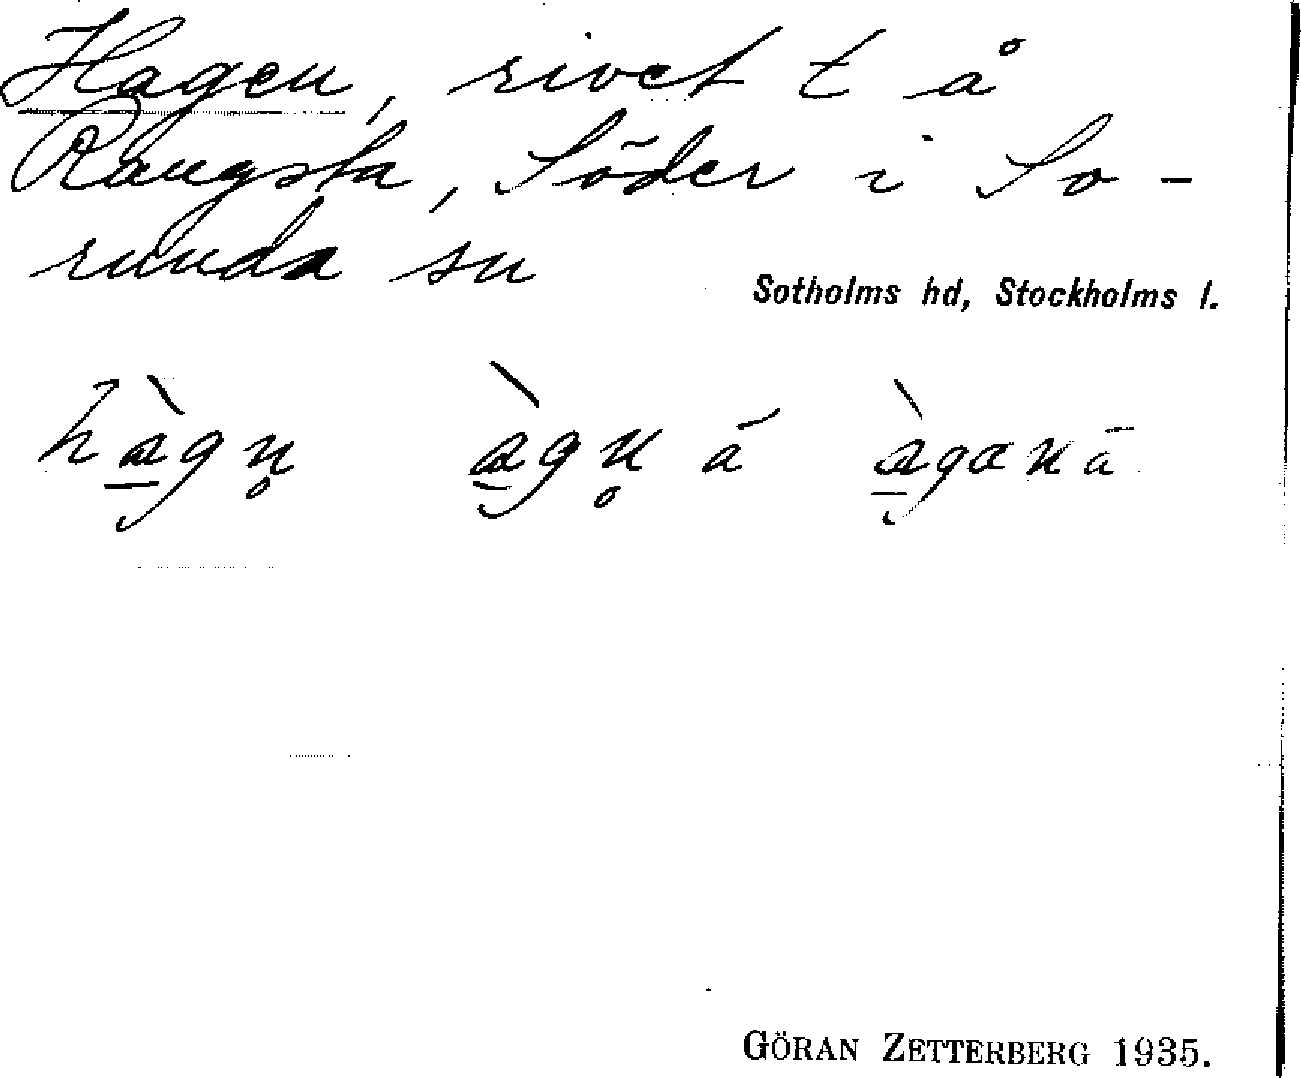 Hagen, rivet t å
Rangsta, Söder i So-
runda sn
Sotholms hd, Stockholms l.
hà̱gn̥ à̱gn̥ á à̱ganā
GÖRAN ZETTERBERG 1935.